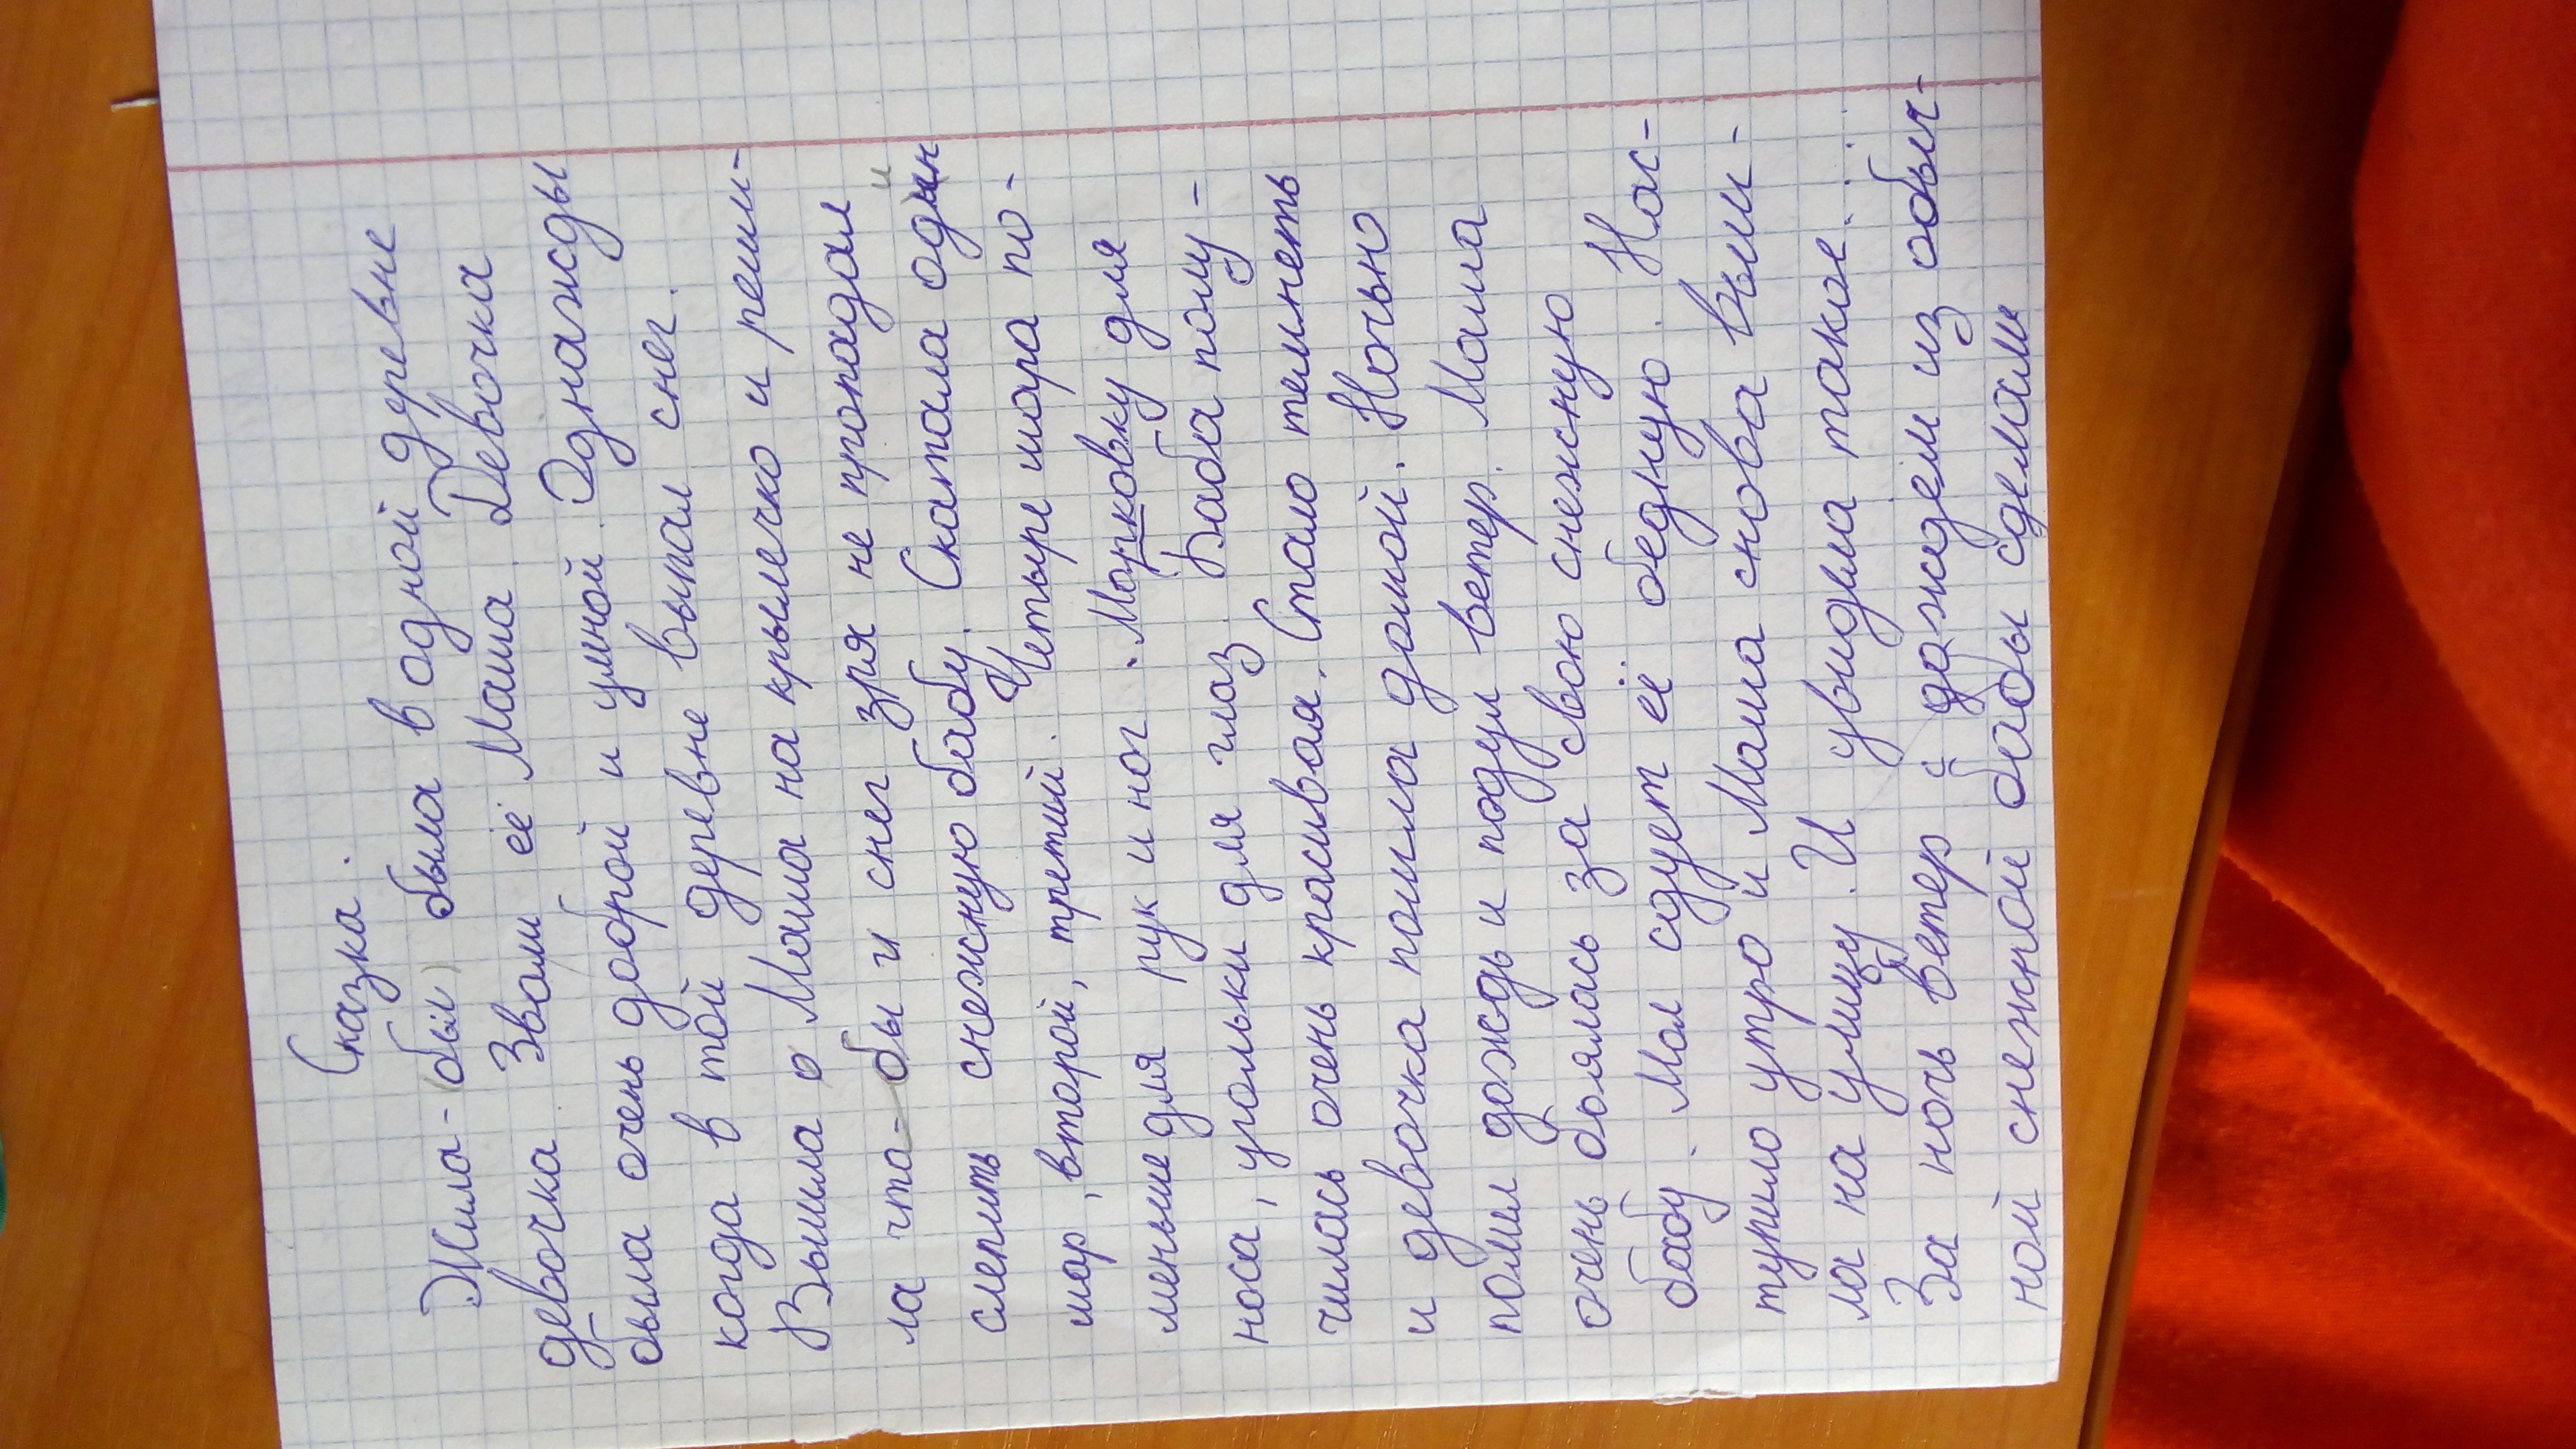 Сказка.
Жила-(был) была в одной деревне
девочка. Звали её Маша. Девочка
была очень доброй и умной. Однажды
когда в той деревне выпал снег.
Вышла о Маша на крылечко и реши-
ла что-бы и снег зря не пропадал
слепить снежную бабу. Скатала один
шар, второй, третий. Четыре шара по-
меньше для рук и ног.Морковку для
носа, угольки для глаз. Баба полу-
чилась очень красивая. Стало темнеть
и девочка пошла домой. Ночью
пошел дождь и подул ветер. Маша
очень боялась за свою снежную
бабу. Мол сдует её бедную. Нас-
тупило утро и Маша снова выш-
ла на улицу. И увидила такое...
За ночь ветер с дождём из обыч-
ной снежной бабы сделали